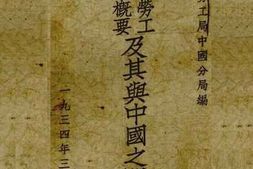 勞工局中國分局編
勞工
概要
及其與中國之
一九三四年三